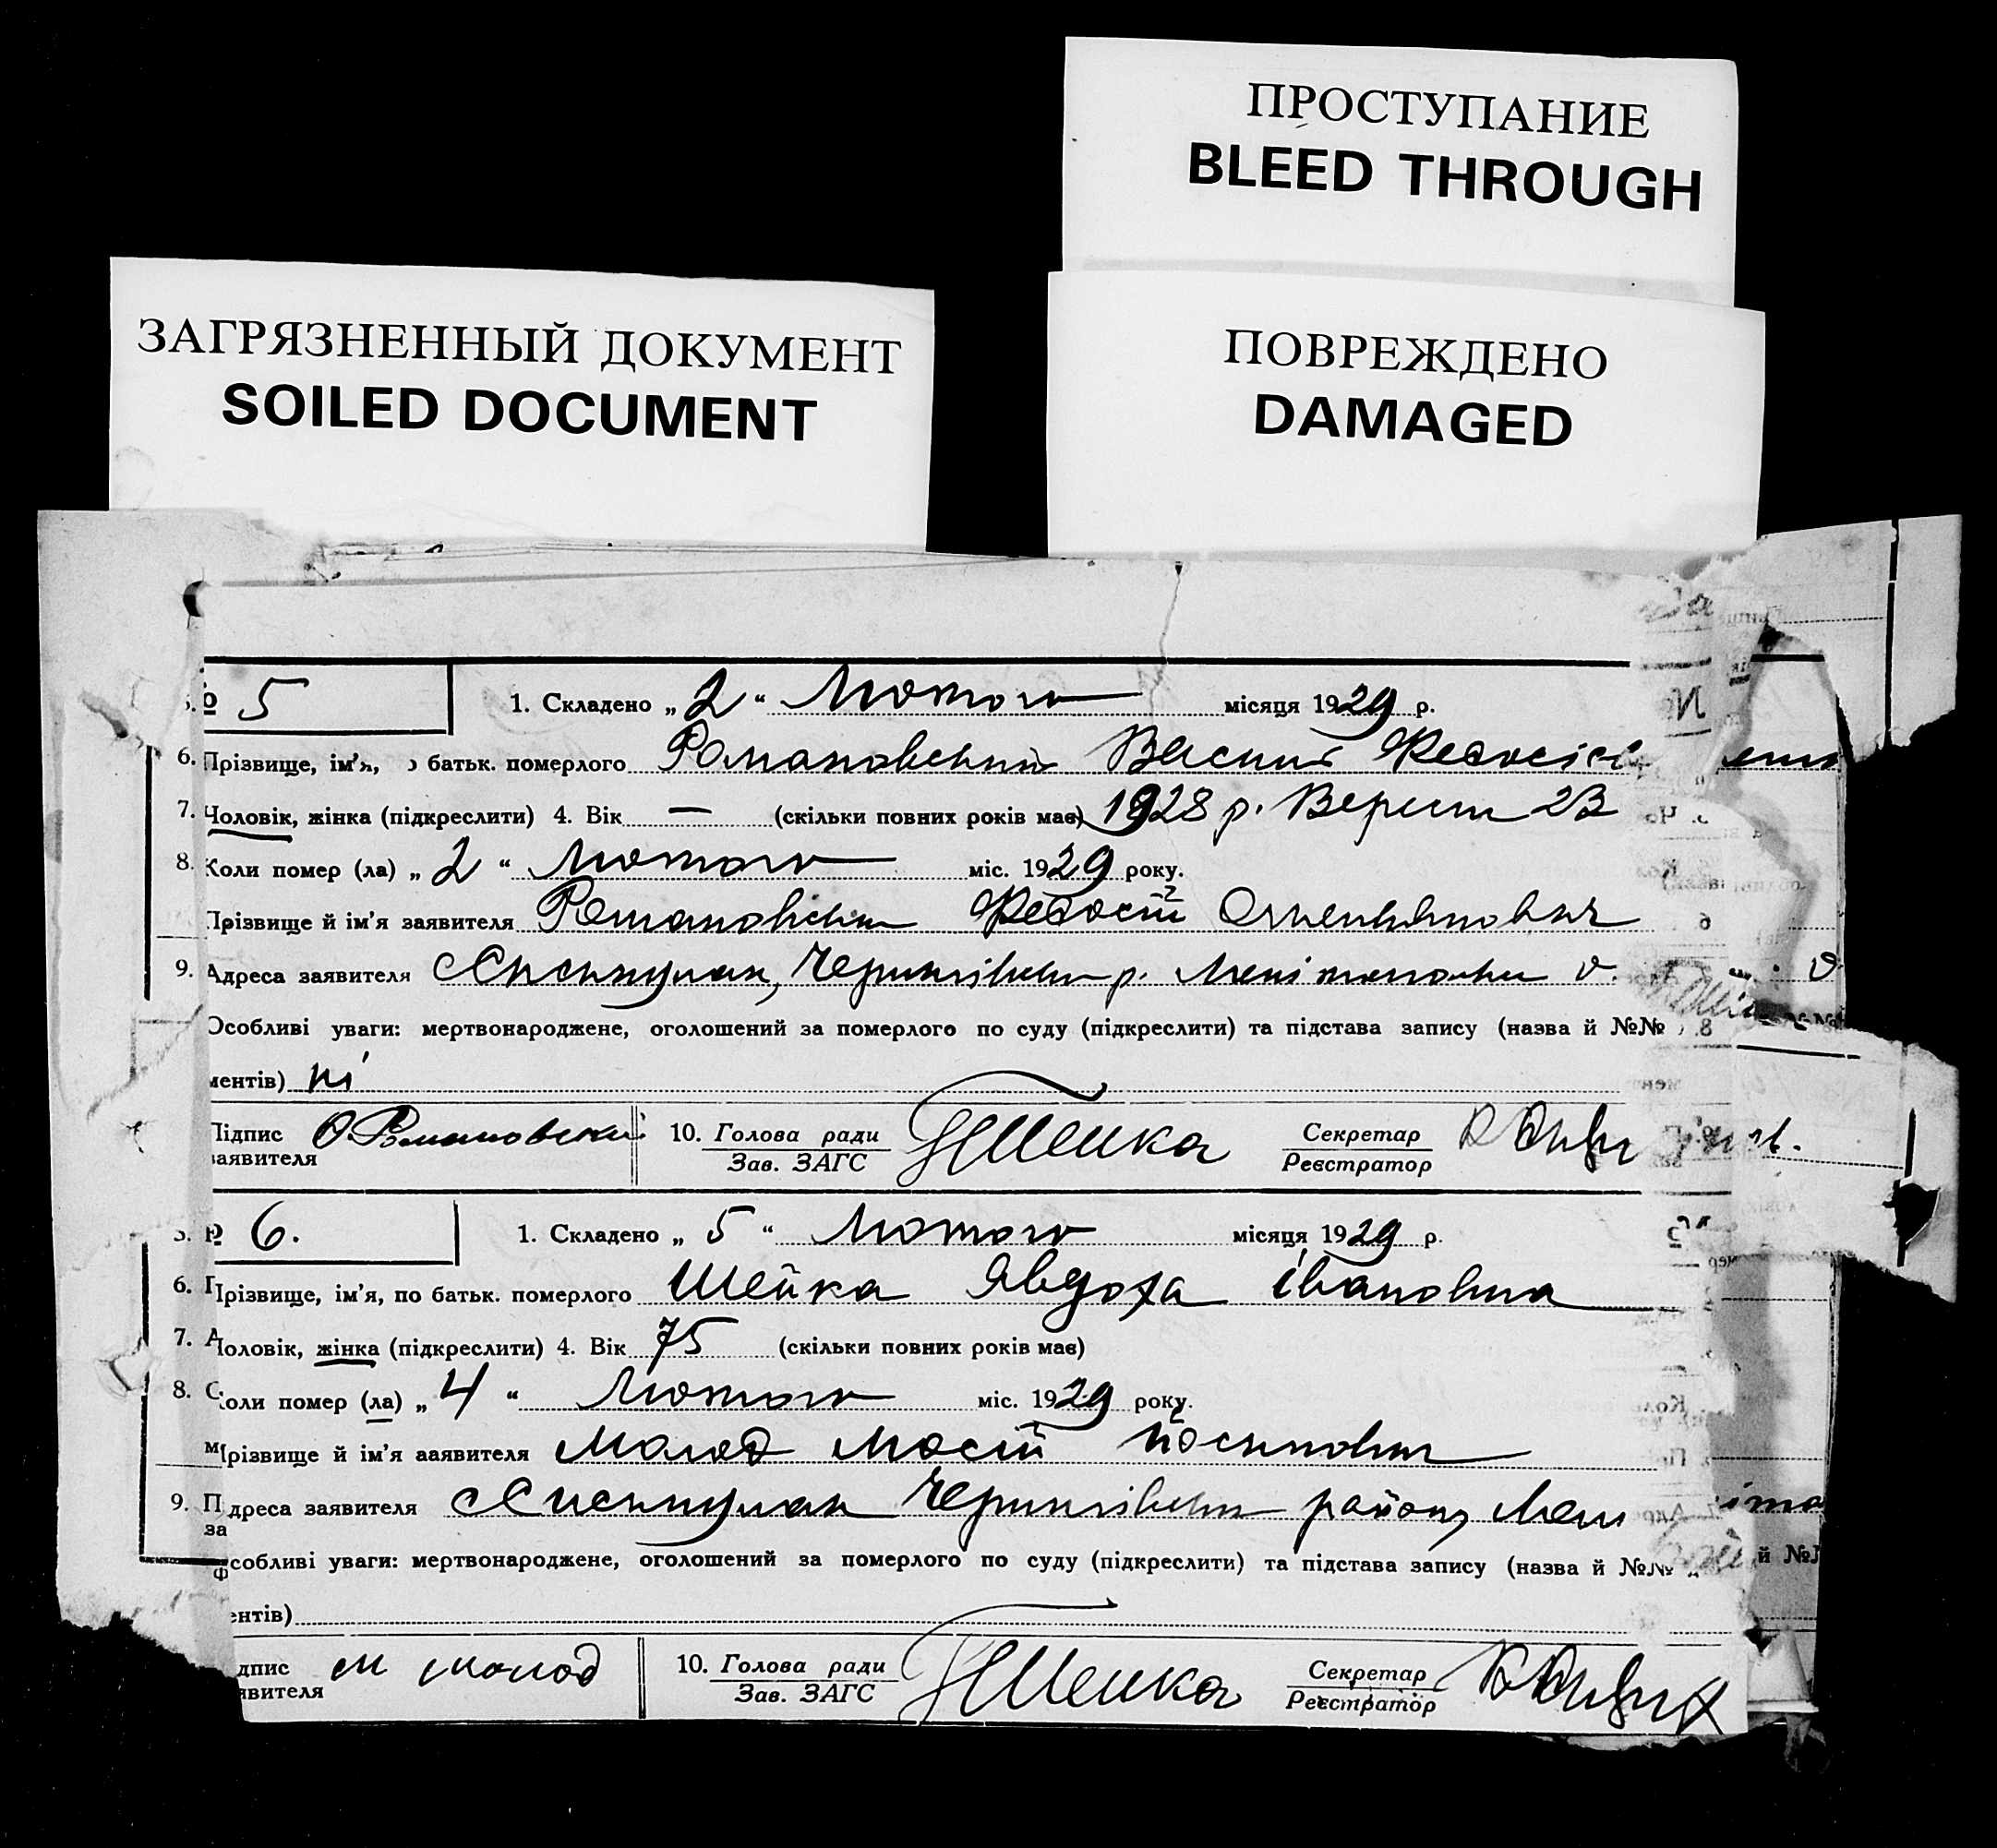 ПРОСТУПАНИЕ
BLEED THROUGH
ЗАГРЯЗНЕННЫЙ ДОКУМЕНТ
SOILED DOCUMENT
ПОВРЕЖДЕНО
DAMAGED
№ 5 1. Складено „ 2 “ Лютого місяця 1929 р.
6. Прізвище, ім'я, о батьк. померлого Романовський Василь
7. Чоловік, жінка (підкреслити) 4. Вік — (скільки повних років має) 1928 р. 23
8. Коли помер (ла) „ 2 “ Лютого міс. 1929 року.
Прізвище й ім'я заявителя Романовський Федосій
9. Адреса заявителя р.
Особливі уваги: мертвонароджене, оголошений за померлого по суду (підкреслити) та підстава запису (назва й №№
ментів) ні
Підпис О Романовський 10. Голова ради Шейка Секретар
заявителя Зав. ЗАГС Реєстратор
№ 6. 1. Складено „ 5 “ Лютого місяця 1929 р.
6. Прізвище, ім'я, по батьк. померлого Шейка Явдоха Івановна
7. Чоловік, жінка (підкреслити) 4. Вік 75 (скільки повних років має)
8. Коли помер (ла) „ 4 “ Лютого міс. 1929 року.
Прізвище й ім'я заявителя Молод Мосій Йосипович
9. Адреса заявителя району
Особливі уваги: мертвонароджене, оголошений за померлого по суду (підкреслити) та підстава запису (назва й №№
ентів)
дпис М Молод 10. Голова ради Шейка Секретар
явителя Зав. ЗАГС Реєстратор